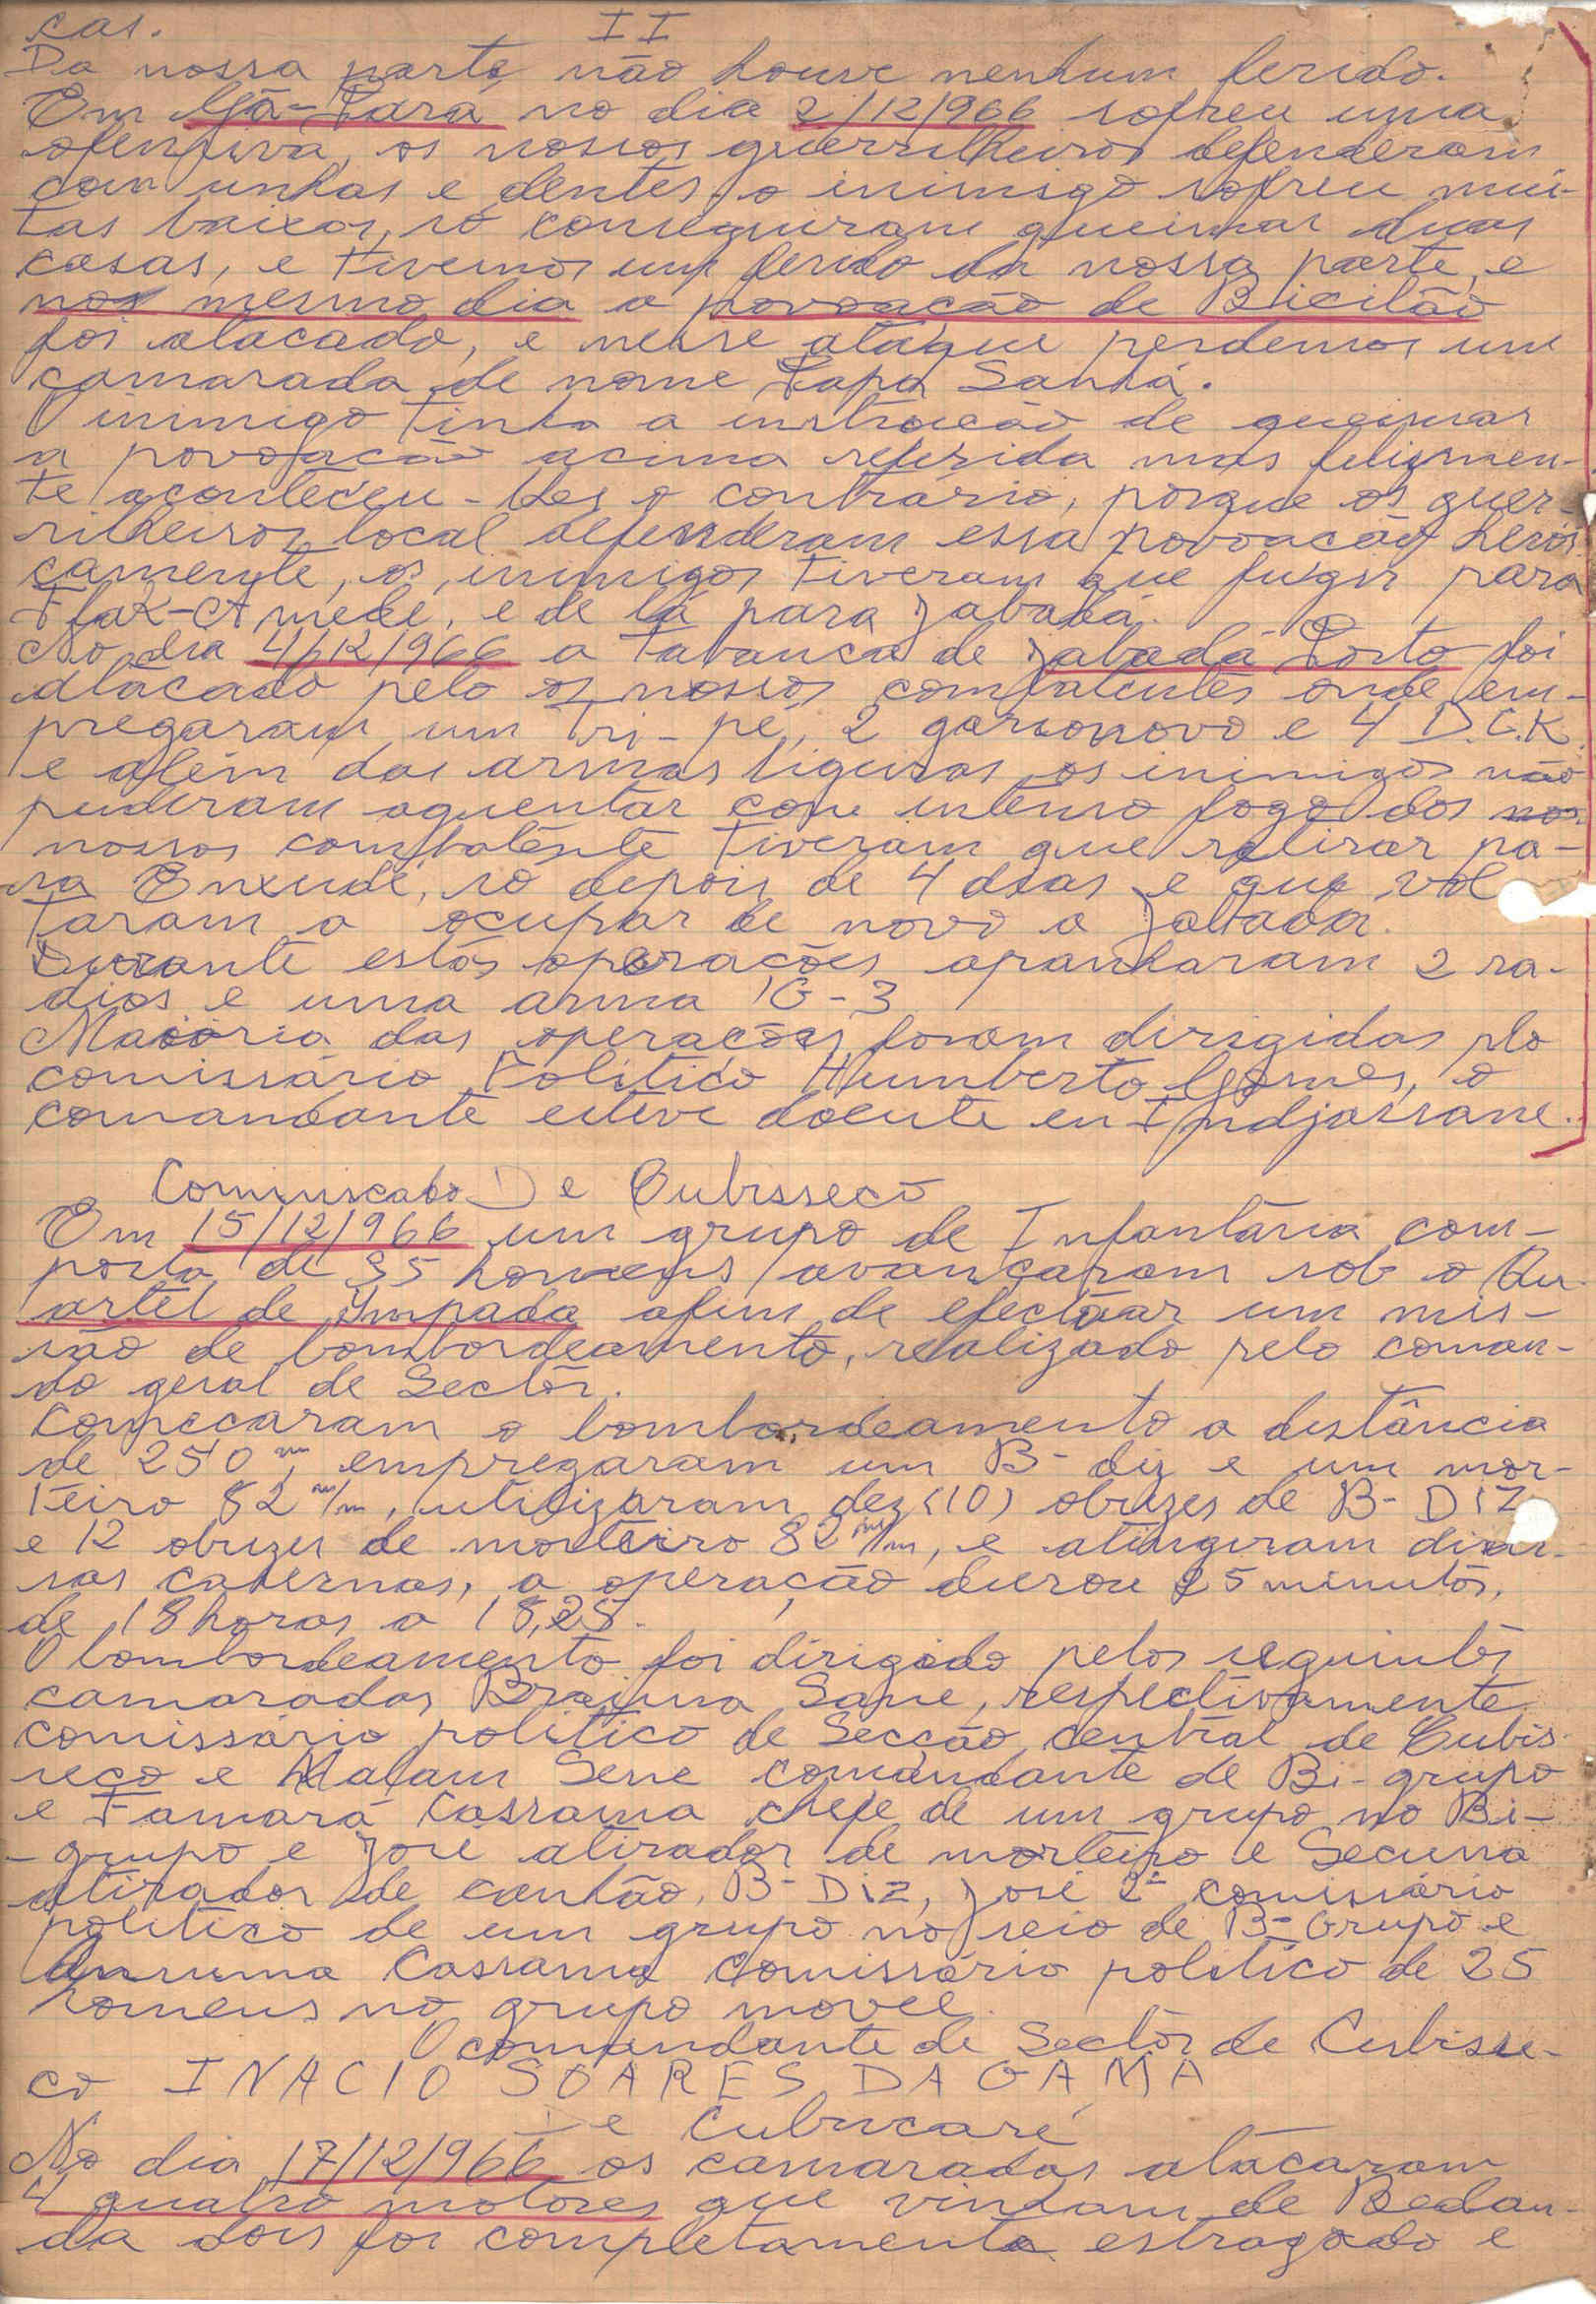 cas. II
Da nossa parte não houve nenhum ferido.
Em Gã-Pará no dia 2/12/966 sofreu uma
ofensiva, os nossos guerrilheiros defenderam
com unhas e dentes, o inimigo sofreu mui-
tas baixas, só conseguiram queimar duas
casas, e tivemos um ferido da nossa parte, e
nos mesmo dia a povoação de Bicilão
foi atacado, e nesse ataque perdemos um
camarada de nome Papa Sanhá.
O inimigo tinha a instrução de queimar
a povoação acima referida mas felizmen-
te aconteceu-les o contrário, porque os guer-
rilheiros local defenderam essa povoação herói-
camente, os inimigos tiveram que fugir para
Flak-Amede, e de lá para Jabadá.
No dia 4/12/966 a tabanca de Jabadá Porto foi
atacado pelo os nossos combatentes onde em-
pregaram um tri-pé, 2 garionovo e 4 D.C.K.
e além das armas liguras os inimigos não
puderam aguentar com intenso fogo dos nos-
nossos combatente tiveram que retirar pa-
ra Enxudé, só depois de 4 dias e que vol
taram a ocupar de novo a Jabada.
Durante estas operações apanharam 2 ra-
dios e uma arma G-3
Maioria das operações foram dirigidas plo
comissário Politico Humberto Gomes, o
comandante esteve doente en Indjassane.
Comuniscado De Cubisseco
Em 15/12/966 um grupo de Infantária com-
posta de 35 homens avançaram sob o Qu-
artel de Impada afim de efectuar um mis-
são de bombordeamento, realizado pelo coman-
do geral de Sector.
Começaram o bombordeamento a distância
de 250 m, empregaram um B-diz e um mor-
teiro 82 m/m, utilizaram dez (10) obuzes de B-DIZ
e 12 obuzes de morteiro 82 m/m, e atingiram diver-
sas casernas, a operação durou 25 minutos,
de 18 horas a 18,25.
O bombordeamento foi dirigido pelos seguintes
camaradas Braima Sane, respectivamente
comissário politico de Secção central de Cubis-
seco e Malam Sene comandante de Bi-grupo
e Famará Cassama chefe de um grupo no Bi-
-grupo e José atirador de morteiro e Secuna
atirador de canhão, B-Diz, José 2º comissário
politico de um grupo no seio de B-Grupo e
Ansuma Cassama Comissário politico de 25
homens no grupo movel.
O comandante de Sector de Cubisse-
co INACIO SOARES DA GAMA
De Cubucaré
No dia 17/12/966 os camaradas atacaram
4 quatro motores que vinham de Bedan-
da dois foi completamente estragado e